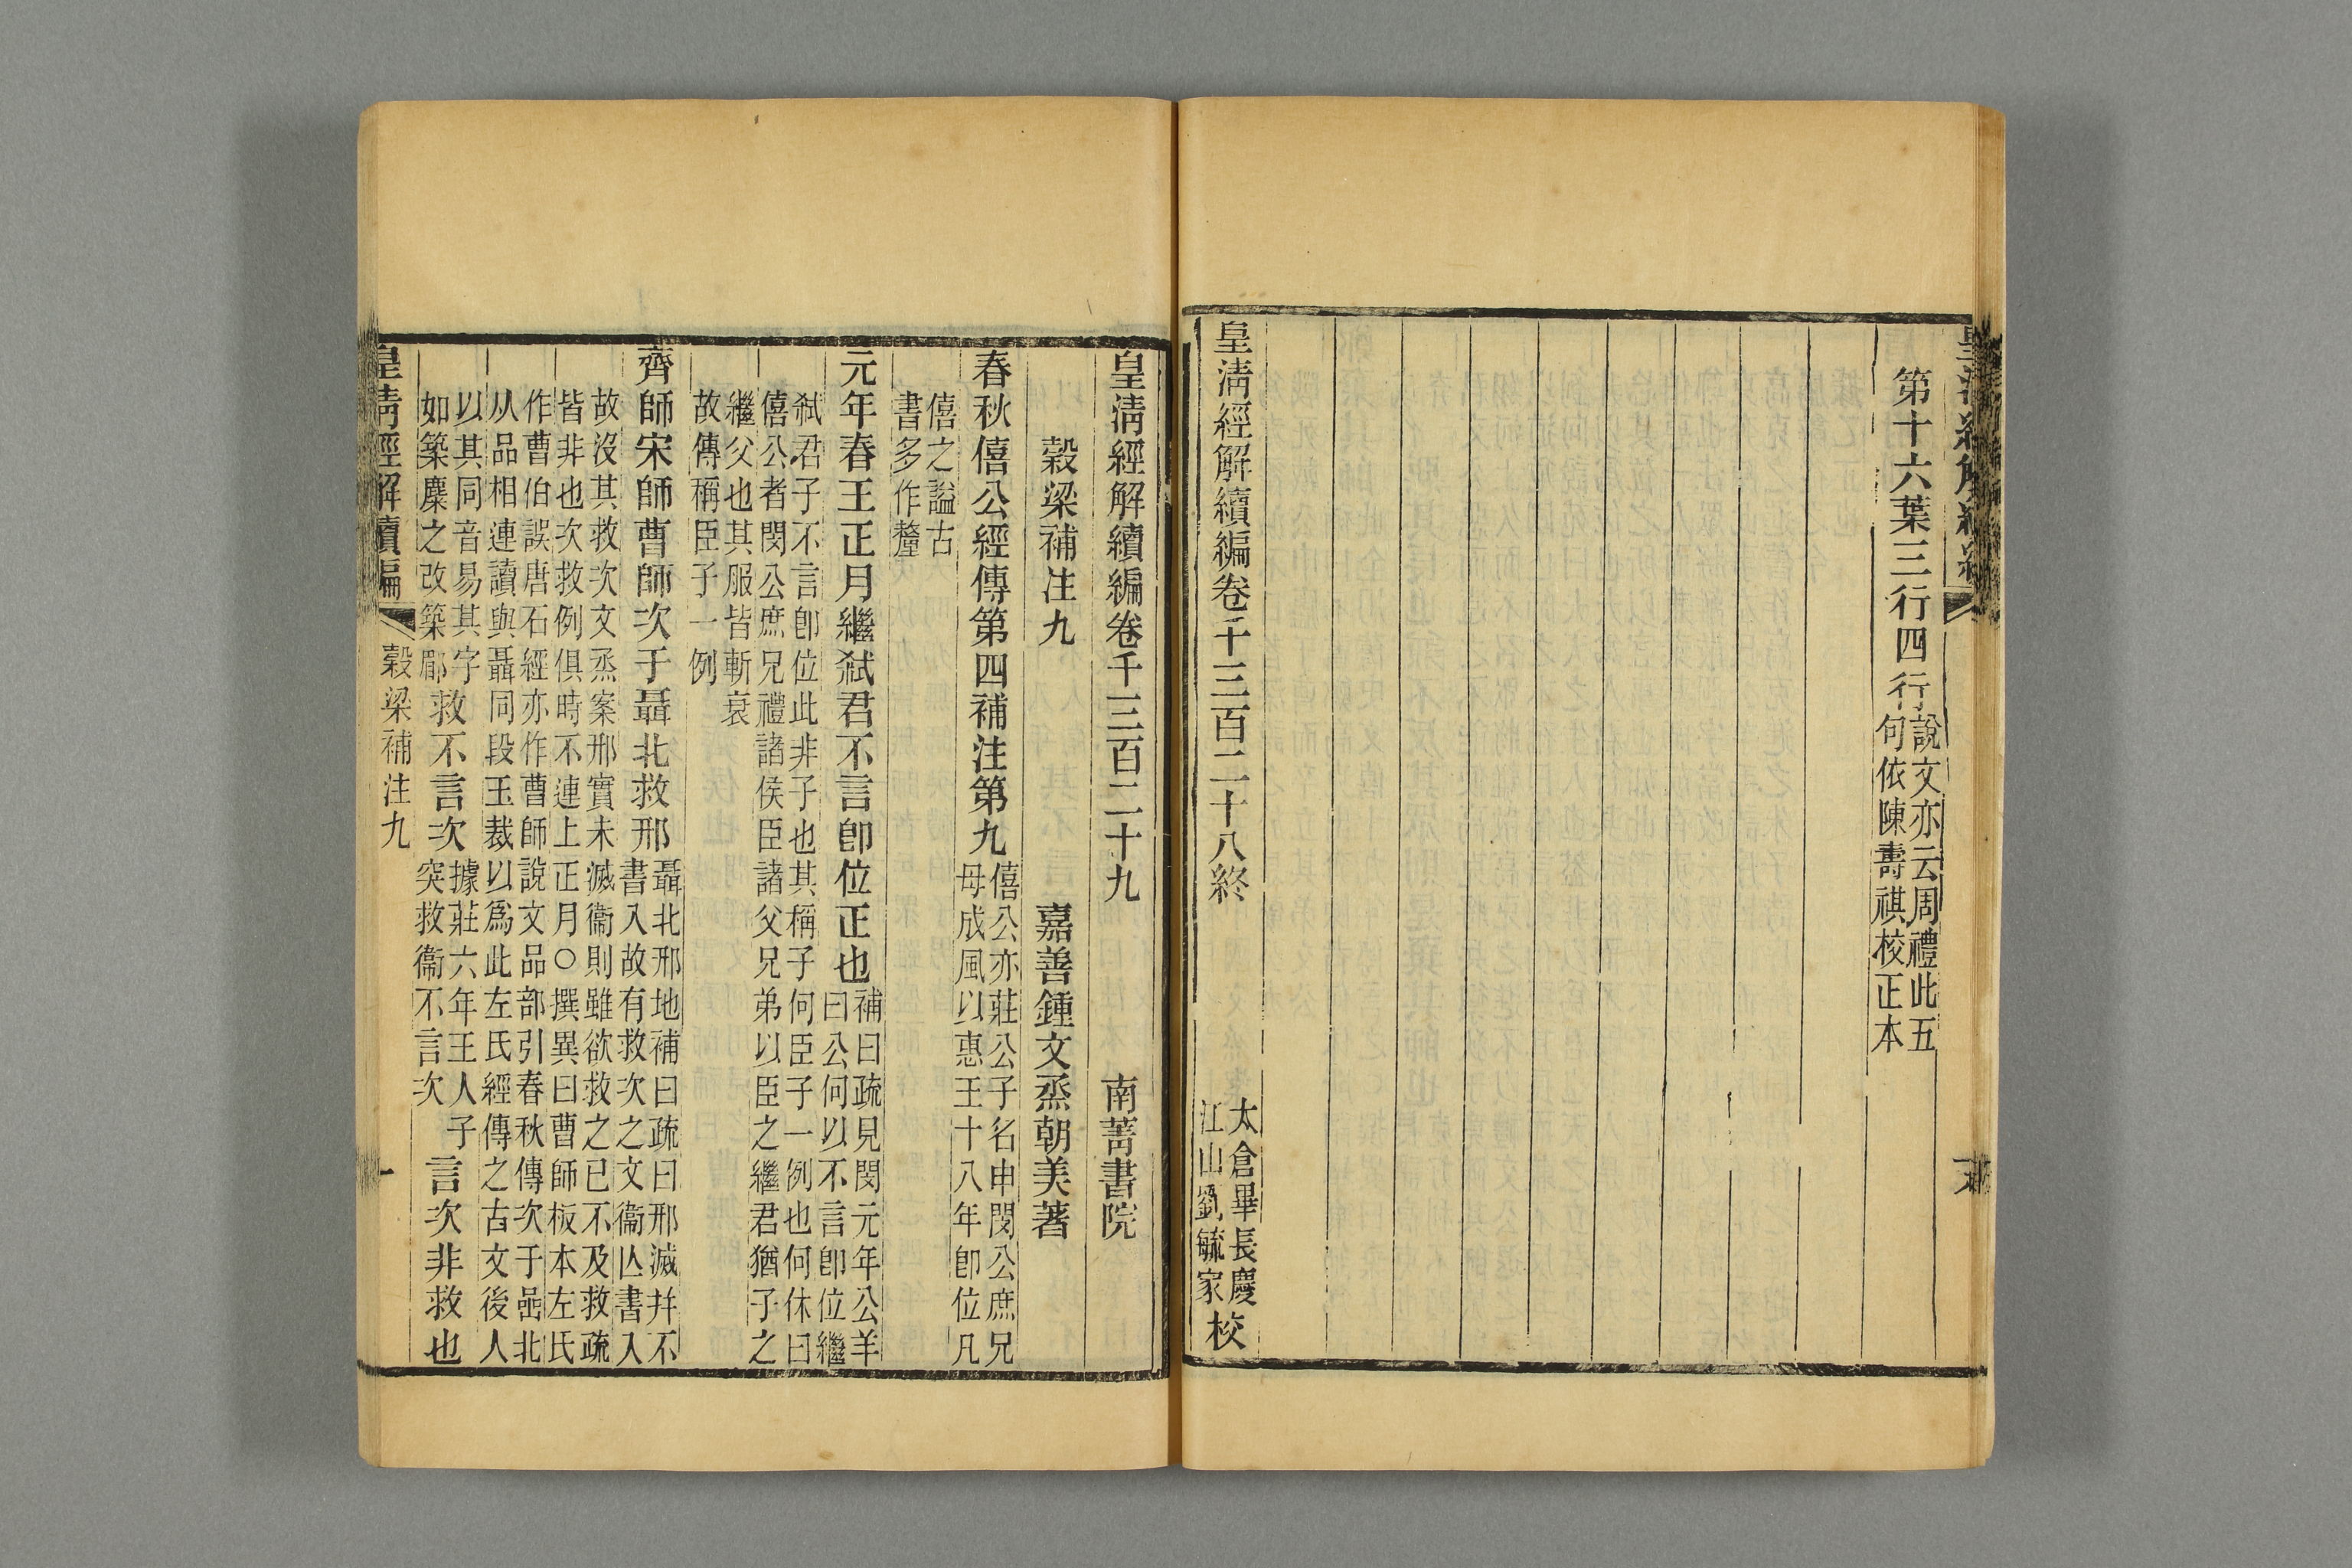 第十六葉三行四行說文亦云周禮此五
句依陳壽祺校正本
皇淸經解續編卷千三百二十八終
太倉畢長慶
江山劉毓家
校
皇淸經解續編卷千三百二十九
南菁書院
穀梁補注九
嘉善鍾文烝朝美著
春秋僖公經傳第四補注第九
僖公亦莊公子名申閔公庶兄
母成風以惠王十八年卽位凡
僖之謚古
書多作釐
元年春王正月繼弒君不言卽位正也
補曰疏見閔元年公羊
曰公何以不言卽位繼
弒君子不言卽位此非子也其稱子何臣子一例也何休曰
僖公者閔公庶兄禮諸侯臣諸父兄弟以臣之繼君猶子之
繼父也其服皆斬衰
故傳稱臣子一例
齊師宋師曹師次于聶北救邢
聶北邢地補曰疏曰邢滅幷不
書入故有救次之文衞亾書入
故沒其救次文烝案邢實未滅衞則雖欲救之已不及救疏
皆非也次救例俱時不連上正月○撰異曰曹師板本左氏
作曹伯誤唐石經亦作曹師說文品部引春秋傳次于嵒北
从品相連讀與聶同段玉裁以爲此左氏經傳之古文後人
以其同音易其字
如築麋之改築郿
救不言次
據莊六年王人子
突救衞不言次
言次非救也
皇淸經解續編
穀梁補注九
一